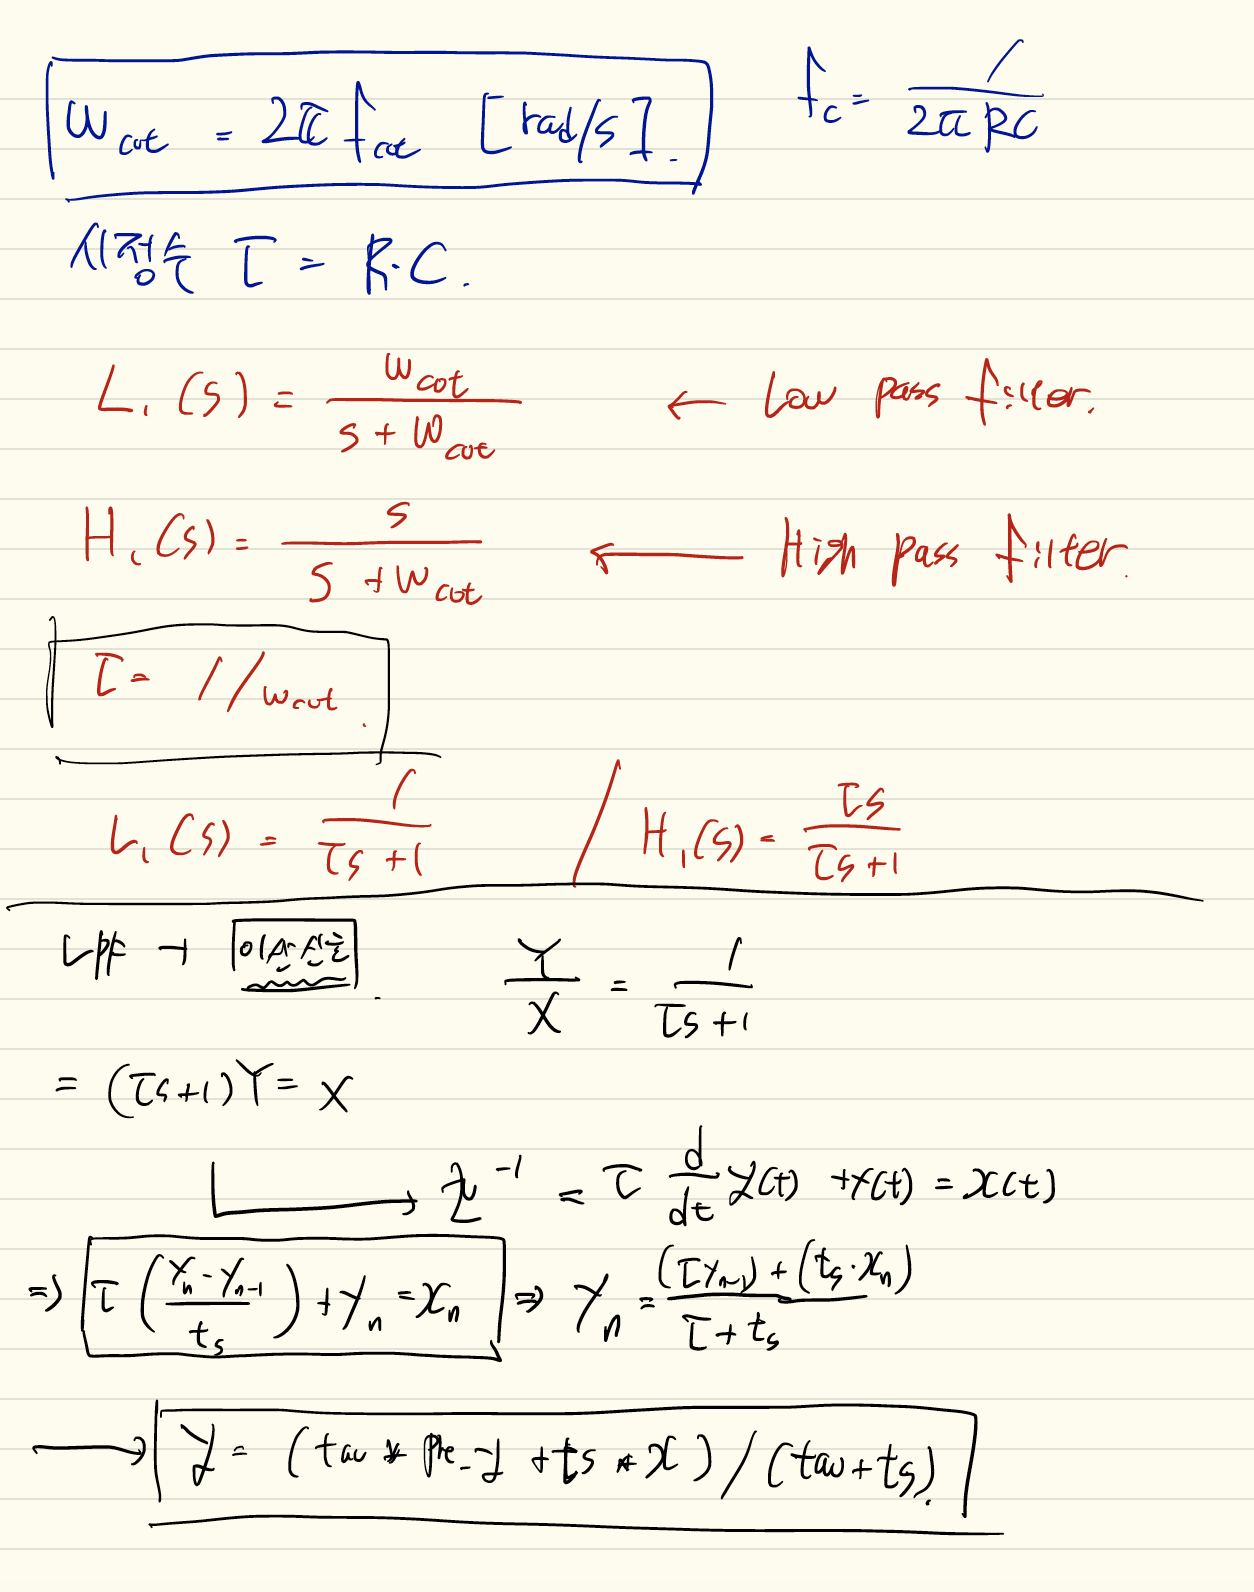 ω_cut = 2π f_cut [rad/s]. f_c = 1 / 2π RC
시정수 τ = R·C.
L₁(s) = ω_cut / (s + ω_cut) ← Low pass filter.
H₁(s) = s / (s + ω_cut) ← High pass filter.
τ = 1/ω_cut.
L₁(s) = 1 / (τs + 1) / H₁(s) = τs / (τs + 1)
LPF → 이산신호. Y/X = 1 / (τs + 1)
= (τs + 1)Y = X
→ ℒ⁻¹ = τ d/dt y(t) + y(t) = x(t)
⇒ τ ((y_n - y_{n-1}) / t_s) + y_n = x_n ⇒ y_n = ((τ y_{n-1}) + (t_s · x_n)) / (τ + t_s)
→ y = (tau * pre_y + ts * x) / (tau + ts).